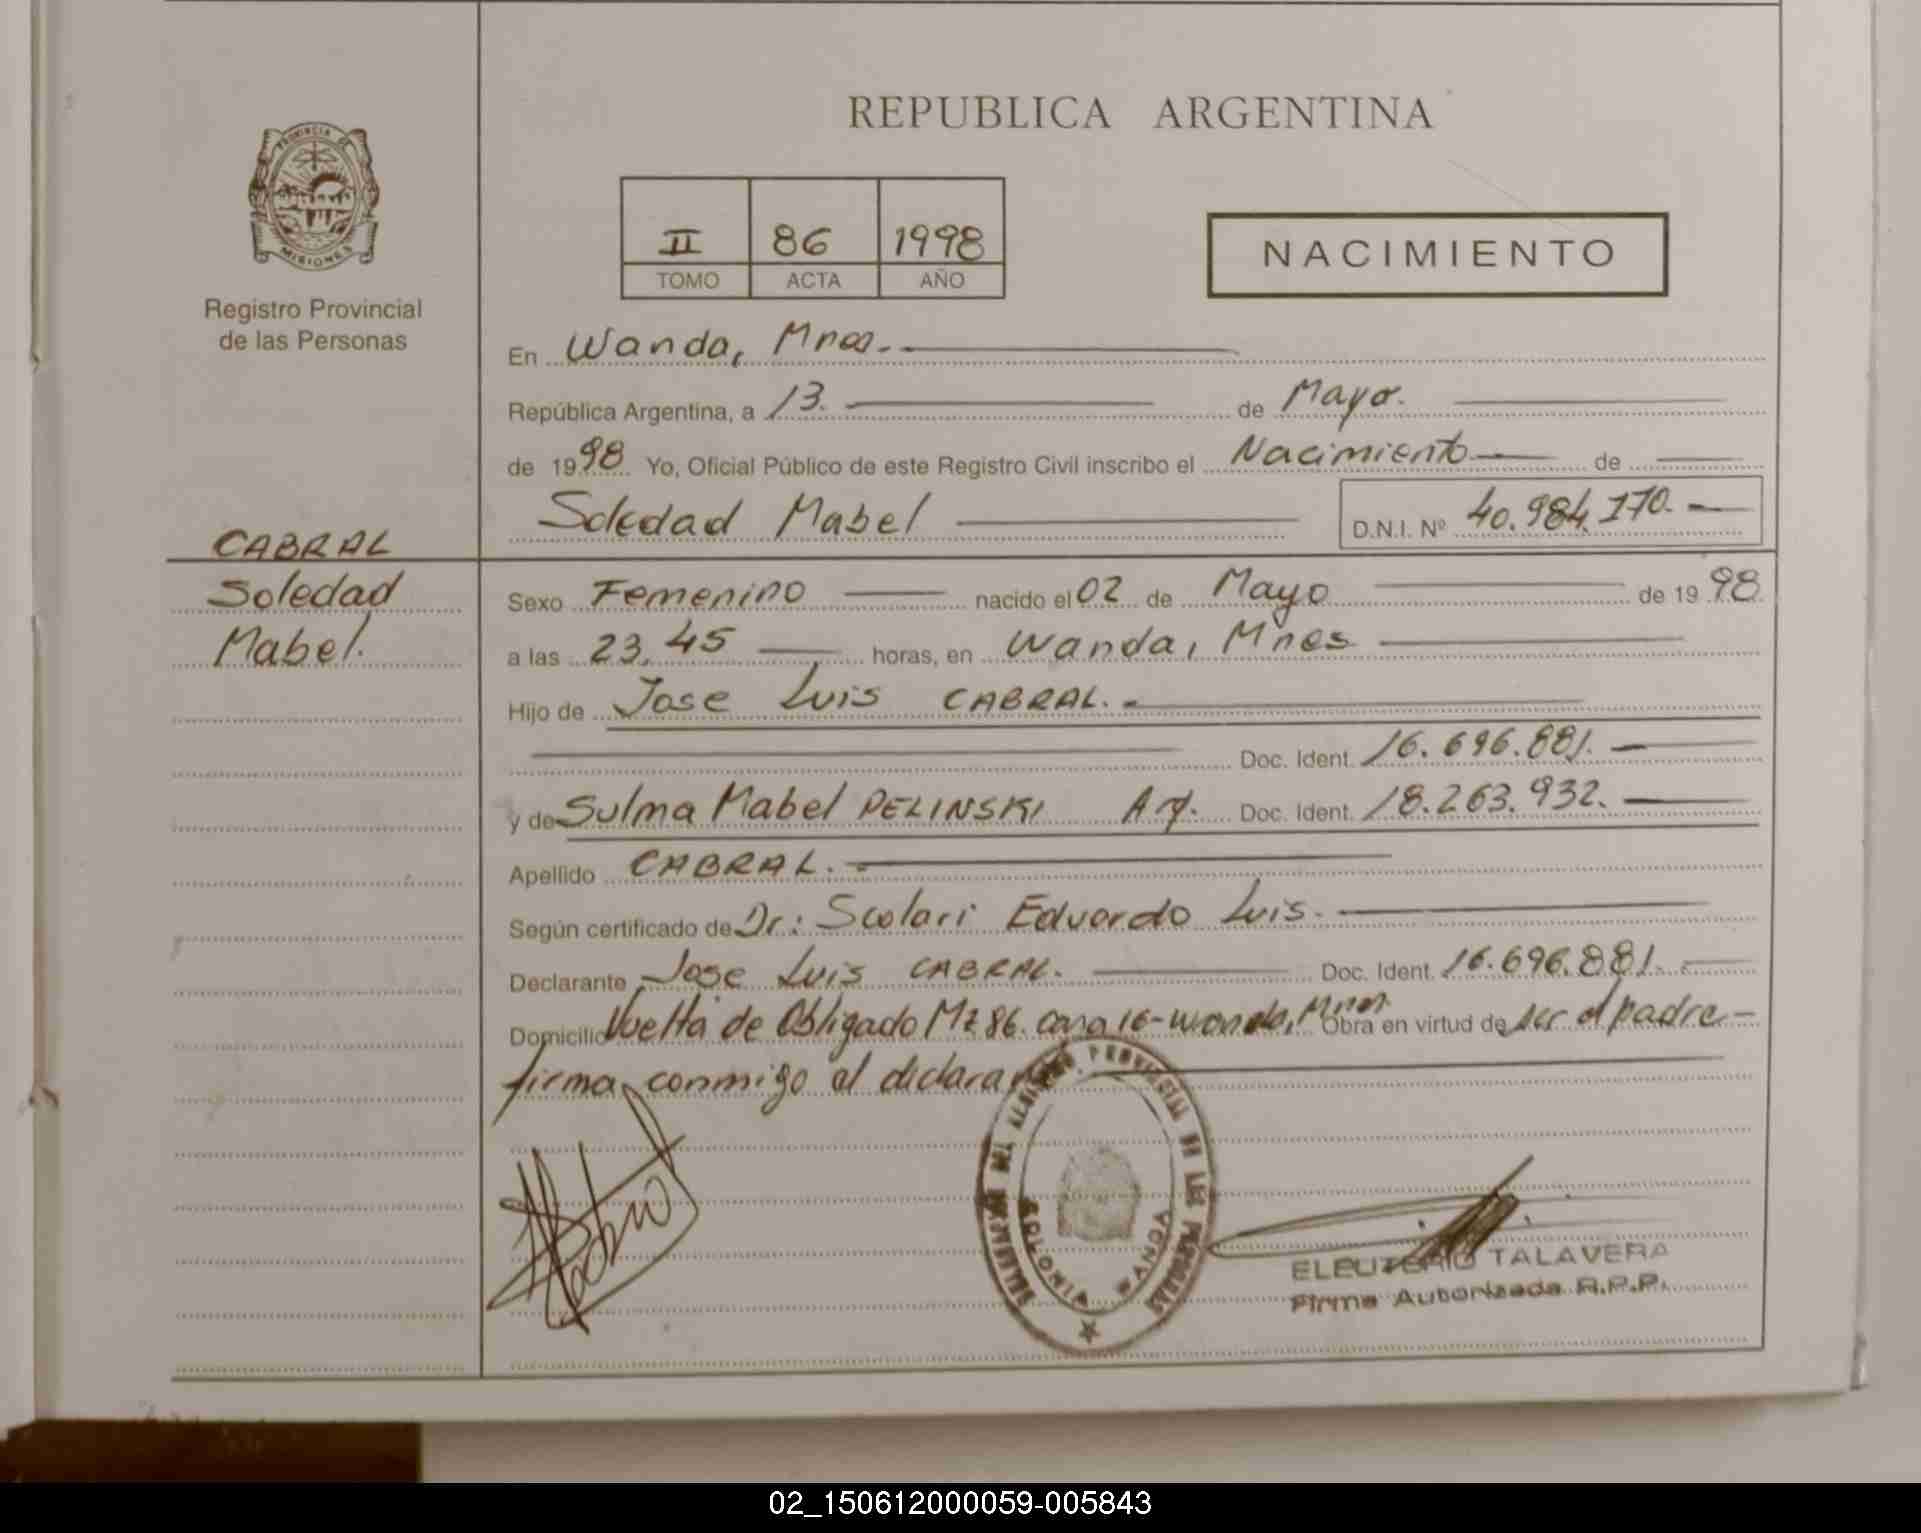 REPUBLICA ARGENTINA
PROVINCIA DE
MISIONES
Registro Provincial
de las Personas
II 86 1998
TOMO ACTA AÑO
NACIMIENTO
En Wanda, Mnes.
República Argentina, a 13. de Mayo.
de 1998 Yo, Oficial Público de este Registro Civil inscribo el Nacimiento de
Soledad Mabel D.N.I. Nº 40.984.170.
CABRAL
Soledad
Mabel.
Sexo Femenino nacido el 02 de Mayo de 1998.
a las 23,45 horas, en Wanda, Mnes
Hijo de Jose Luis CABRAL.
Doc. Ident. 16.696.881.
y de Sulma Mabel PELINSKI Arg. Doc. Ident. 18.263.932.
Apellido CABRAL.
Según certificado de Dr: Scolari Eduardo Luis.
Declarante Jose Luis CABRAL. Doc. Ident. 16.696.881.
Domicilio Vuelta de Obligado Mz 86. casa 16-Wanda, Mnes. Obra en virtud de ser el padre-
firma conmigo el declarante
DEL REGISTRO PROVINCIAL DE LAS PERSONAS
COLONIA WANDA
ELEUTERIO TALAVERA
Firma Autorizada R.P.P.
02_150612000059-005843